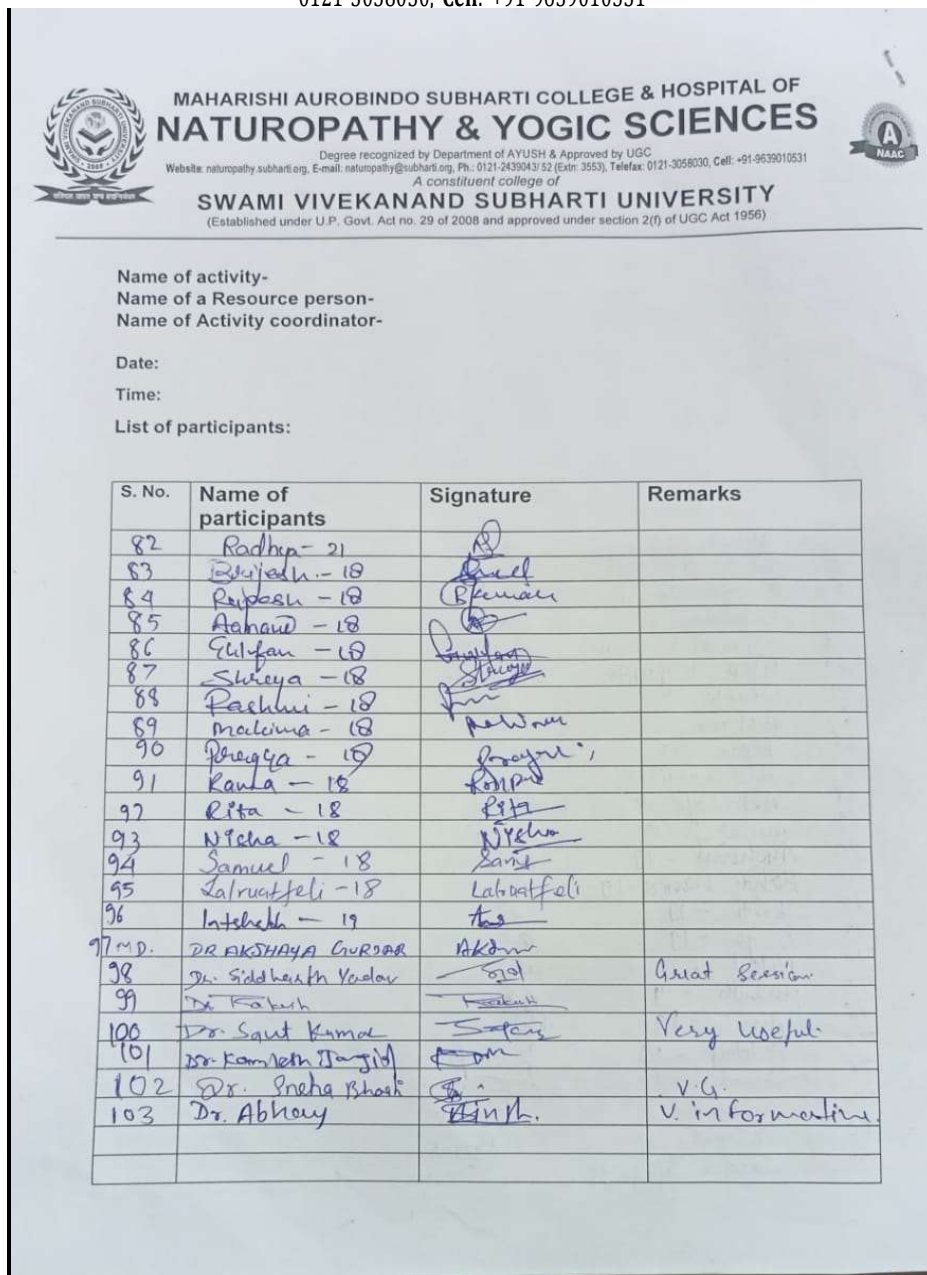 0121-3058030, Cell: +91-9639010531
MAHARISHI AUROBINDO SUBHARTI COLLEGE & HOSPITAL OF
NATUROPATHY & YOGIC SCIENCES
Degree recognized by Department of AYUSH & Approved by UGC
Website: naturopathy.subharti.org, E-mail. naturopathy@subharti.org, Ph.: 0121-2439043/ 52 (Extn: 3553), Telefax: 0121-3058030, Cell: +91-9639010531
A constituent college of
SWAMI VIVEKANAND SUBHARTI UNIVERSITY
(Established under U.P. Govt. Act no. 29 of 2008 and approved under section 2(f) of UGC Act 1956)
NAAC
A
Name of activity-
Name of a Resource person-
Name of Activity coordinator-
Date:
Time:
List of participants:
S. No. Name of participants Signature Remarks
82 Radhea - 21
83 Brijesh - 18
84 - 18
85 - 18
86 - 18
87 Shreya - 18 Shreya
88 Rashmi - 18
89 - 18
90 Peragya - 18
91 - 18
92 Rita - 18 Rita
93 Nisha - 18 Nisha
94 Samuel - 18
95 Lalruatfeli - 18 Lalruatfeli
96 - 19
97 MD. DR AKSHAYA GURJAR
98 Dr. Siddharth Yadav Great Session
99 Dr. Rakesh
100 Dr. Saut Kumar Very useful.
101 Dr. Kamlesh Jangid
102 Dr. Sneha Bharti V.G.
103 Dr. Abhay V. informative.